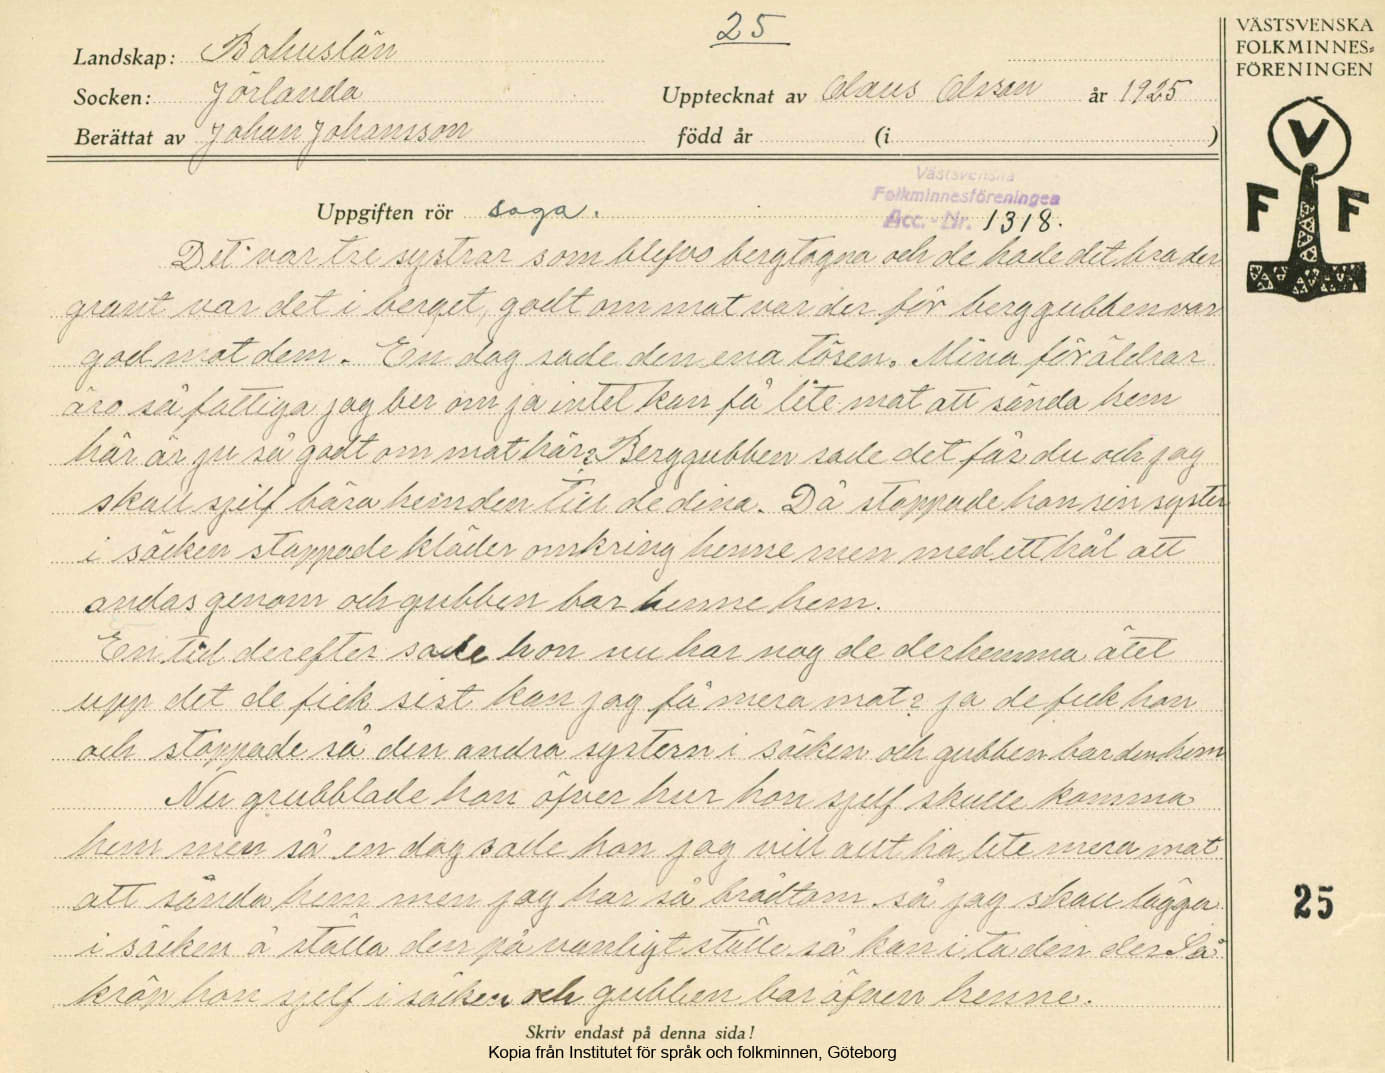 25
VÄSTSVENSKA
FOLKMINNES=
FÖRENINGEN
Landskap: Bohuslän
Socken: Jörlanda
Upptecknat av Olaus Olsson år 1925
Berättat av Johan Johansson född år (i )
V
F F
Västsvenska
Folkminnesföreningen
Acc. - Nr. 1318.
Uppgiften rör saga.
Det var tre systrar som blefvo bergtagna och de hade det bra der
grant var det i berget, godt om mat var der för berggubben var
god mot dem. En dag sade den ena tösen. Mina föräldrar
äro så fattiga jag ber om ja intet kan få lite mat att sända hem
här är ju så godt om mat här? Berggubben sade det får du och jag
skall sjelf bära hem den till de dina. Då stoppade hon sin syster
i säcken stoppade kläder omkring henne men med ett hål att
andas genom och gubben bar henne hem.
En tid derefter sade hon nu har nog de derhemma ätet
upp det de fick sist kan jag få mera mat? ja de fick hon
och stoppade så den andra systern i säcken och gubben bar den hem
Nu grubblade hon öfver hur hon sjelf skulle komma
hem men så en dag sade hon jag vill allt ha lite mera mat
att sända hem men jag har så brådtom så jag skall lägga
i säcken å ställa den på vanligt ställe så kan i ta den der Så
kröp hon sjelf i säcken och gubben bar öfven henne.
25
Skriv endast på denna sida!
Kopia från Institutet för språk och folkminnen, Göteborg